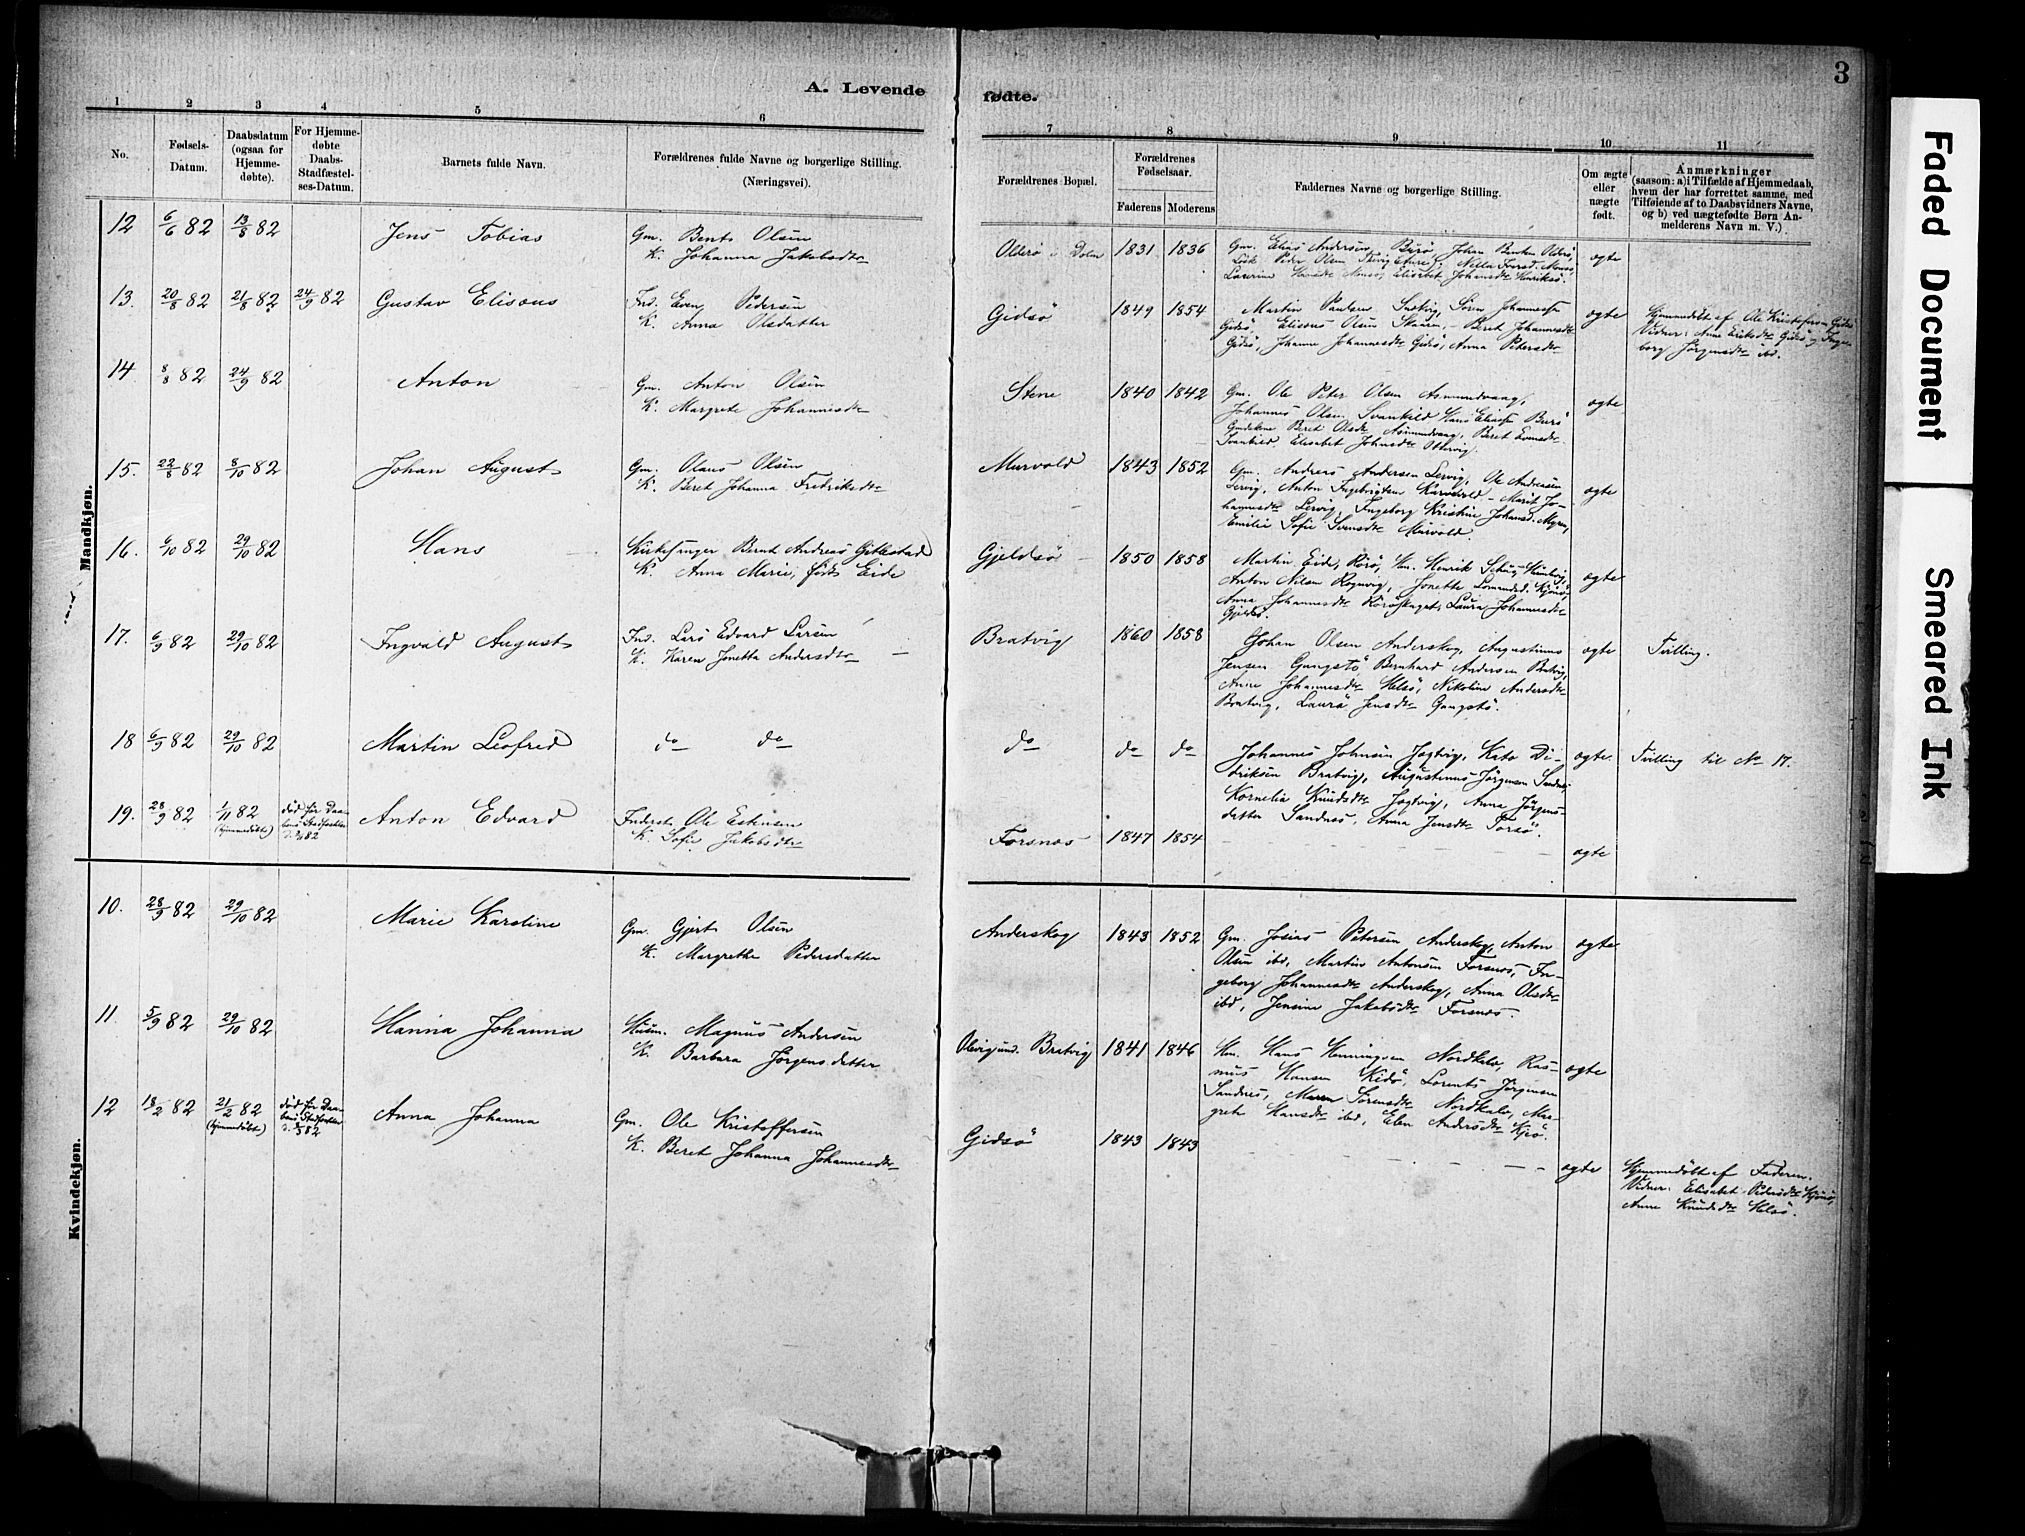 3
A. Levende fødte.
1 2 3 4 5 6 7 8 9 10 11
No.
Fødsels-
Datum.
Daabsdatum
(ogsaa for
Hjemme-
døbte).
For Hjemme-
døbte
Daabs-
Stadfæstel-
ses-Datum.
Barnets fulde Navn.
Forældrenes fulde Navne og borgerlige Stilling.
(Næringsvei).
Forældrenes Bopæl.
Forældrenes
Fødselsaar.
Faderens Moderens
Faddernes Navne og borgerlige Stilling.
Om ægte
eller
uægte
født.
Anmærkninger
(saasom: a) i Tilfælde af Hjemmedaab,
hvem der har forrettet samme, med
Tilføiende af to Daabsvidners Navne,
og b) ved uægtefødte Børn An-
melderens Navn m. V.)
Mandkjøn.
12 6/6 82 13/8 82 Jens Tobias
Gm. Bent Olsen
K. Johanna Jakobsdtr
1831 1836
Gm. Elias Andersen
ægte
13. 20/8 82 21/8 82 24/9 82 Gustav Elisæus
Ind. Even Pedersen
K. Anna Olsdatter
Gidsø 1849 1854
Martin Paulsen Johannessen
Gidsø, Elisæus Olsen Skaren, Beret Johannesdtr
Gidsø, Johanne Johannesdtr Gidsø, Anna Petersdtr
ægte
Hjemmedøbt af Ole Kristofersen Gidsø
Vidner: Anne Eriksdtr Gidsø og Inge-
borg Jørgensdtr ibd.
14. 8/8 82 24/9 82 Anton
Gm. Anton Olsen
K. Margrete Johannesdtr
Stene 1840 1842
Gm. Ole Peter Olsen Asmundvaag,
Johannes Olsen Svankild Hans Eliassen
Beret Olsdtr Asmundvaag, Beret Evensdtr
Svankild Elisabet Johnsdtr
ægte
15. 22/8 82 8/10 82 Johan August
Gm. Olaus Olsen
K. Beret Johanna Fredriksdtr
Murvold 1843 1852
Gm. Andreas Andersen Lervig, Ole Andersen
Lervig, Anton Ingebrigtsen - Marit Jo-
hannesdtr Lervig, Ingeborg Kristine Johansd. Myrn,
Emilie Sofie Svensdtr Murvold.
ægte
16. 6/10 82 29/10 82 Hans
Kirkesanger Bernt Andreas Gillestad
K. Anna Marie, født Eide
Gjeldsø 1850 1858
Martin Eide, Henrik
Anton Nilsen Jonette
Anna Johannesdtr Laura Johannesdtr
Gjeldsø.
ægte
17. 6/9 82 29/10 82 Ingvald August
Ind. Lars Edvard Larsen
K. Karen Jonetta Andersdtr
Bratvig 1860 1858
Johan Olsen Anderskog, Augustinus
Jensen Gangstø, Bernhard Andersen Bratvig,
Anne Johannesdtr Helsø, Nikoline Andersdtr
Bratvig, Laura Jensdtr Gangstø.
ægte
Tvilling.
18 6/9 82 29/10 82 Martin Leofred
do do
do do do
Johannes Johnsen Jøgtvig, Kato Di-
driksen Bratvig, Augustinus Jørgensen Sandnes,
Kornelia Knudsdtr Jøgtvig, Anna Jørgens-
datter Sandnes, Anna Jensdtr Torsø.
ægte
Tvilling til No 17.
19. 28/9 82 1/11 82 (hjemmedøbt) død før Daa-
82 Anton Edvard
Inderst Ole Estensen
K. Sofie Jakobsdtr
Forsnes 1847 1854
ægte
Kvindekjøn.
10. 28/9 82 29/10 82 Marie Karoline
Gm. Gjert Olsen
K. Margrethe Pedersdatter
Anderskog 1843 1852
Gm. Josias Petersen Anderskog, Anton
Olsen ibd, Martin Antonsen Forsnes, In-
geborg Johannesdtr Anderskog, Anna Olsdtr
ibd, Jensine Jakobsdtr Forsnes
ægte
11. 5/9 82 29/10 82 Hanna Johanna
Husm. Magnus Andersen
K. Barbara Jørgensdatter
und. Bratvig 1841 1846
Hm. Hans Henningsen Nordkalv, Ras-
mus Hansen Kidø, Lorents Jørgensen
Sandnes, Maren Sørensdtr Nordkalv, Mar-
grete Hansdtr ibd, Elen Andersdtr Kjrø.
ægte
12 18/2 82 21/2 82 (hjemmedøbt) død før Daa-
82 Anna Johanna
Gm. Ole Kristoffersen
K. Beret Johanna Johannesdtr
Gidsø 1843 1843
ægte
Hjemmedøbt af Faderen.
Vidner: Elisabet Pedersdtr
Anne Knudsdtr Helsø.
Faded Document
Smeared Ink